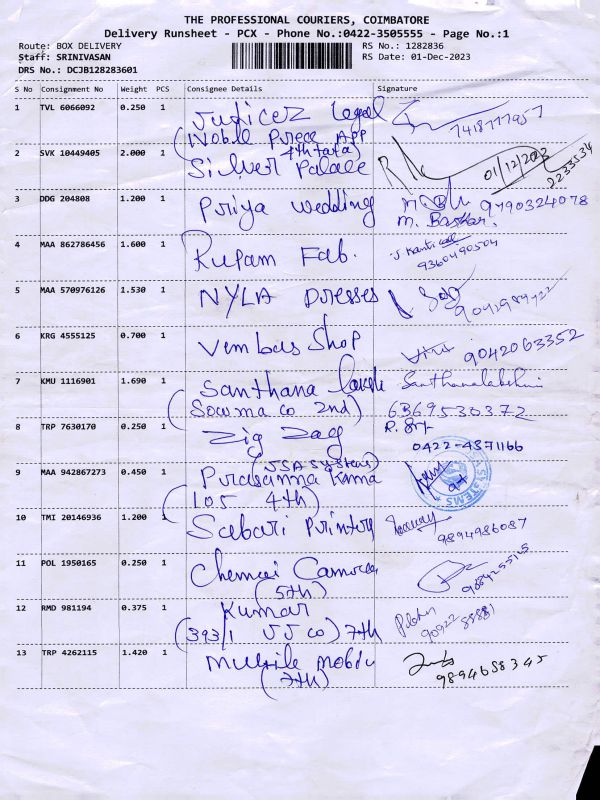 THE PROFESSIONAL COURIERS, COIMBATORE
Delivery Runsheet - PCX - Phone No.:0422-3505555 - Page No.:1
Route: BOX DELIVERY
RS No.: 1282836
Staff: SRINIVASAN
RS Date: 01-Dec-2023
DRS No.: DCJB128283601
S No Consignment No Weight PCS Consignee Details Signature
1 TVL 6066092 0.250 1 Legal 7418777957
(Nobil Prece App
4th tata)
2 SVK 10449405 2.000 1 Silver Palace 01/12/2023 2233534
3 DDG 204808 1.200 1 Priya wedding 9790324078
M. Baskar.
4 MAA 862786456 1.600 1 Rupam Fab. 9360490504
5 MAA 570976126 1.530 1 NYLA Dresses
6 KRG 4555125 0.700 1 Vembus Shop 9042063352
7 KMU 1116901 1.690 1 Santhana Santhanalakshmi
2nd) 6369530372
8 TRP 7630170 0.250 1 Zig Zag 0422-4371166
(JSA Systems)
9 MAA 942867273 0.450 1 Prasanna Kuma SYSTEMS
(105 4th)
10 TMI 20146936 1.200 1 Sabari Printery 9894986087
11 POL 1950165 0.250 1 Chennai Camera 9884255125
(5th)
12 RMD 981194 0.375 1 Kumar 90922 88881
(393/1 JJ co) 7th
13 TRP 4262115 1.420 1 9894658345
(7th)